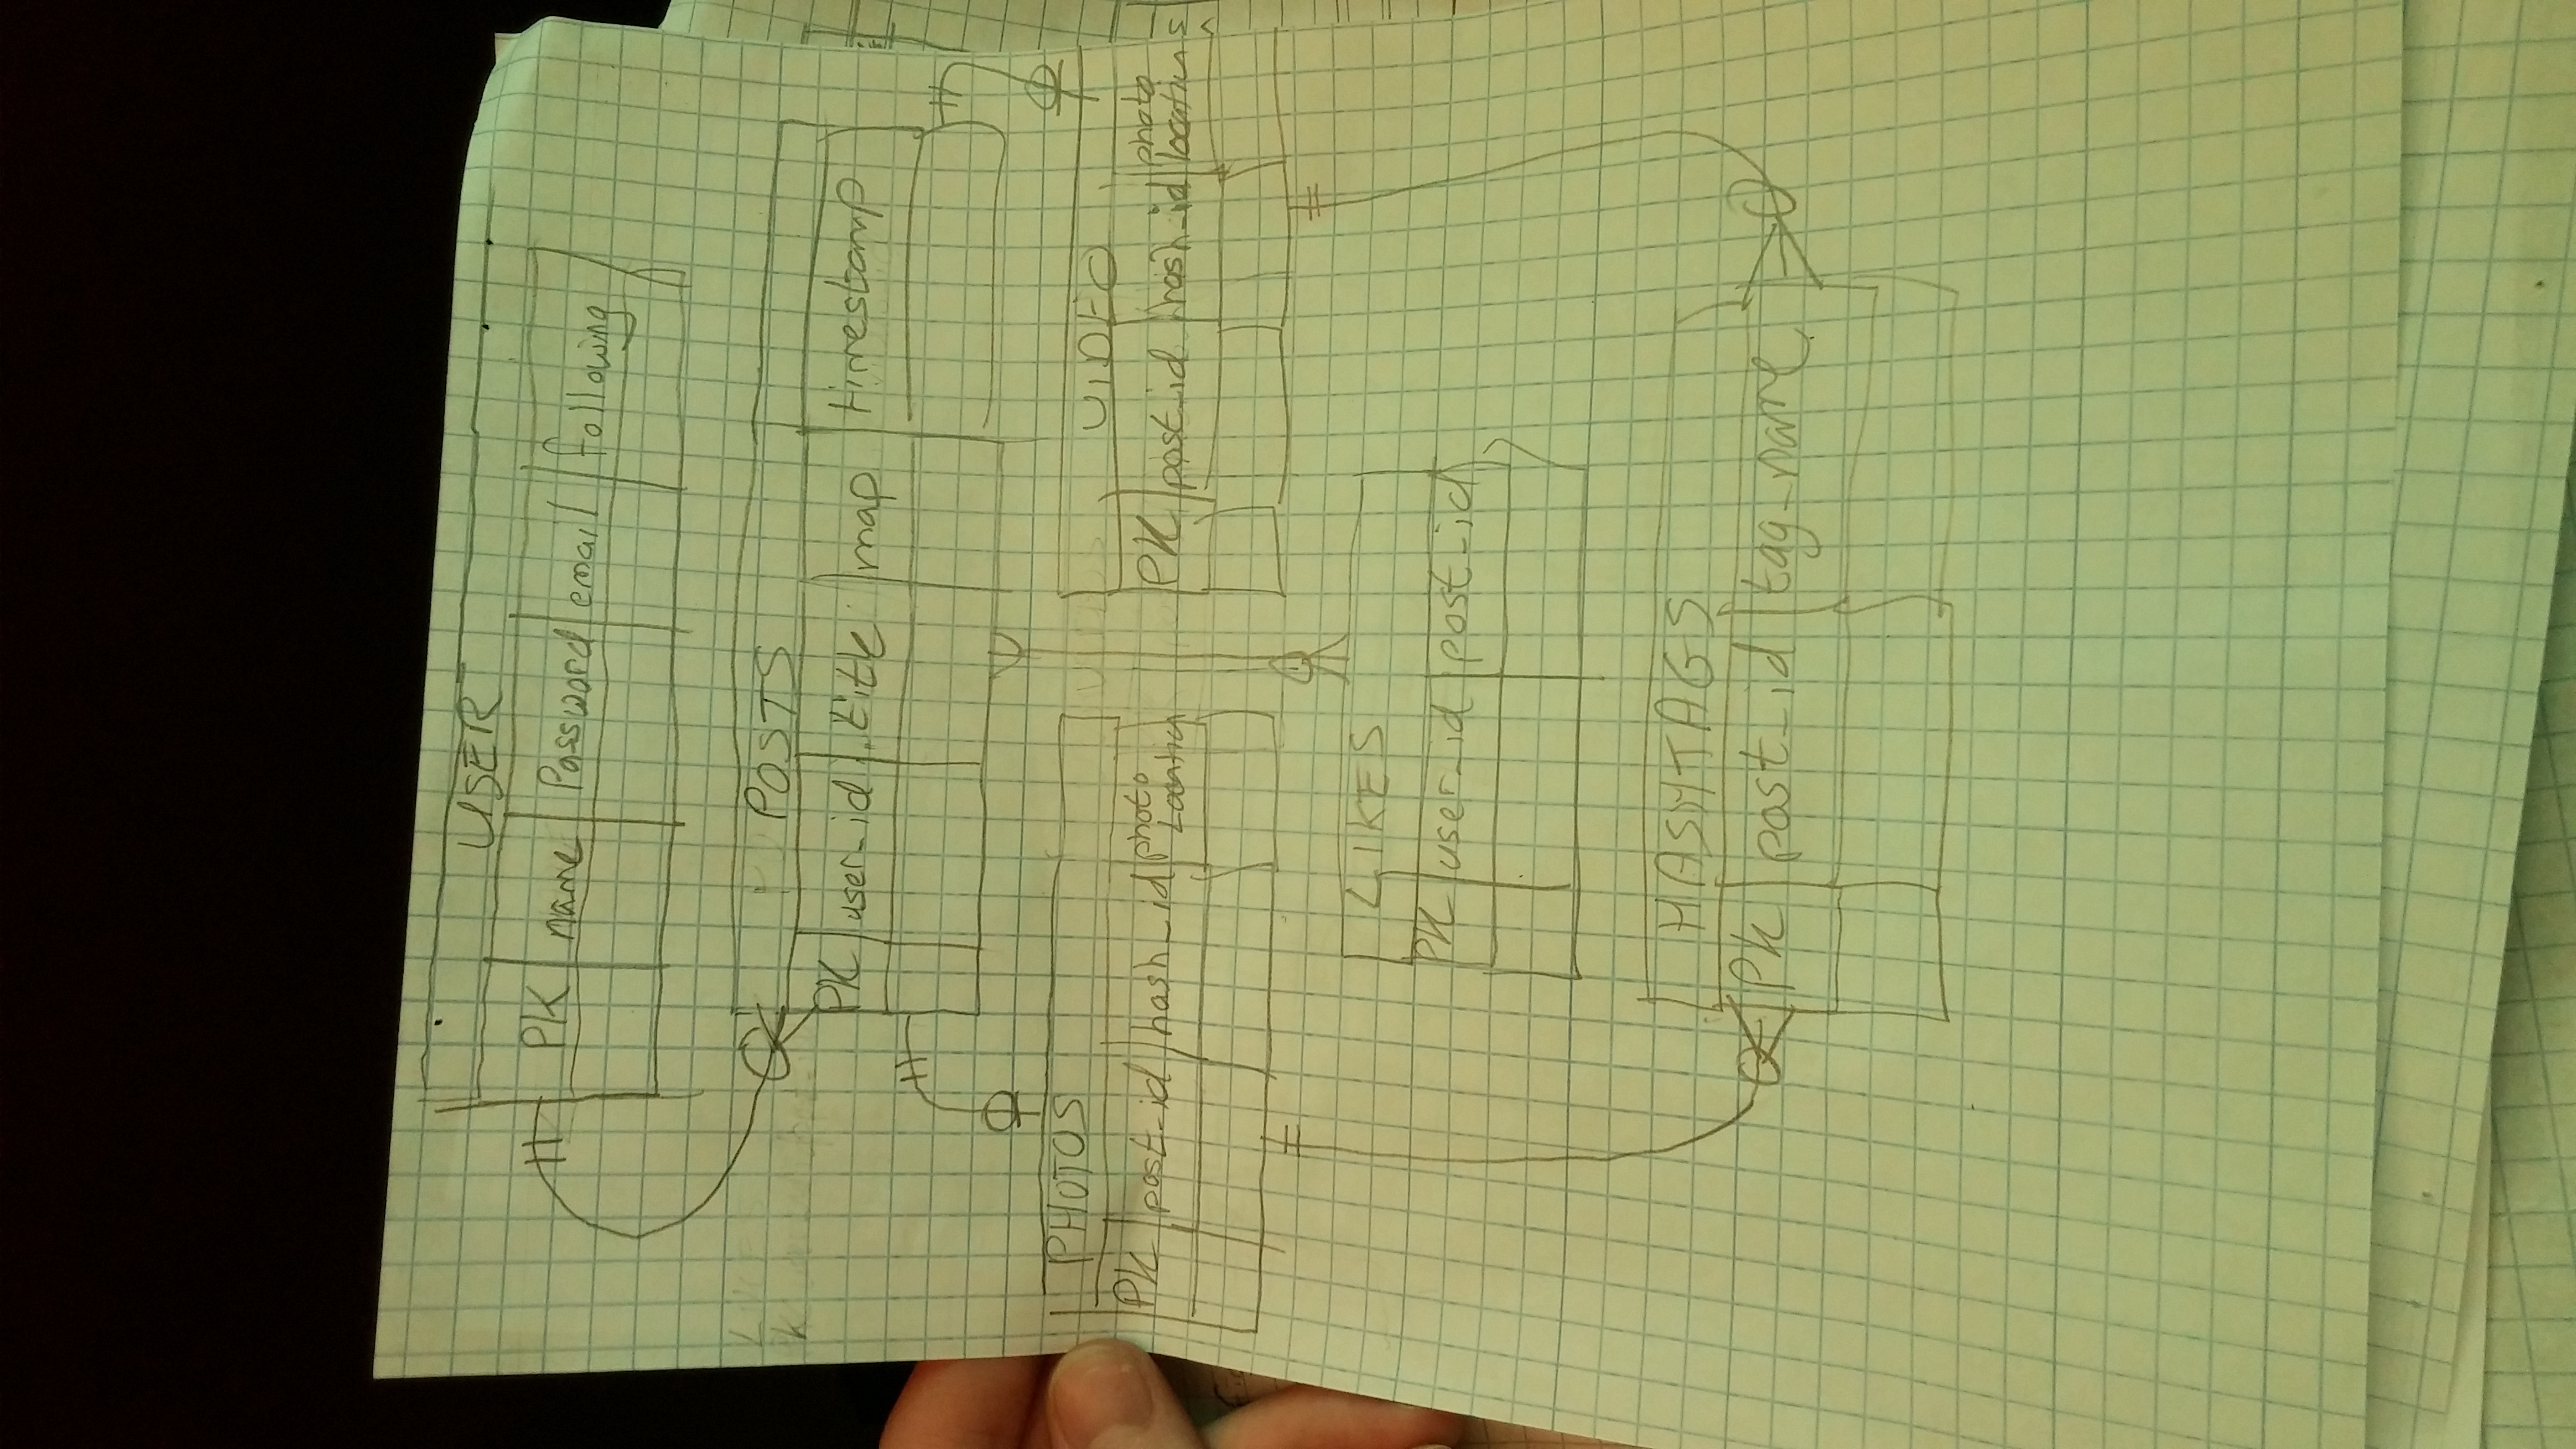 USER
PK name Password email following
POSTS
PK user_id title map timestamp
PHOTOS
PK post_id hash_id photo
Location
VIDEO
PK post_id hash_id photo
location
LIKES
PK user_id post_id
HASHTAGS
PK post_id tag_name